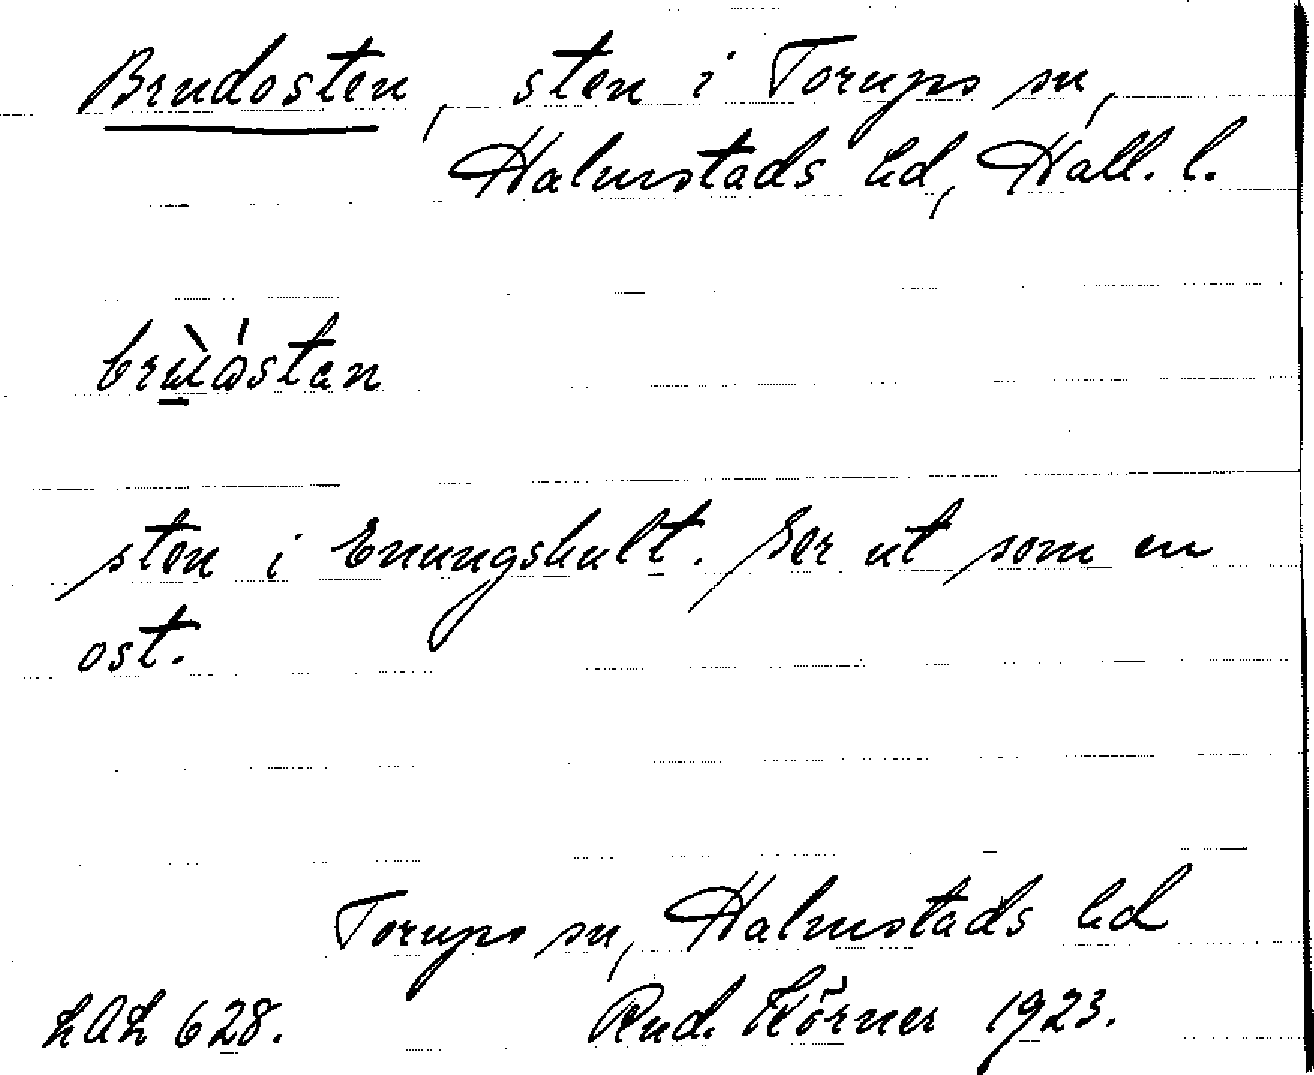 Brudosten, sten i Torups sn,
Halmstads hd, Hall. l.
sten i Enungshult. Ser ut som en
ost.
Torups sn, Halmstads hd
LAL 628. Rud. Körner 1923.